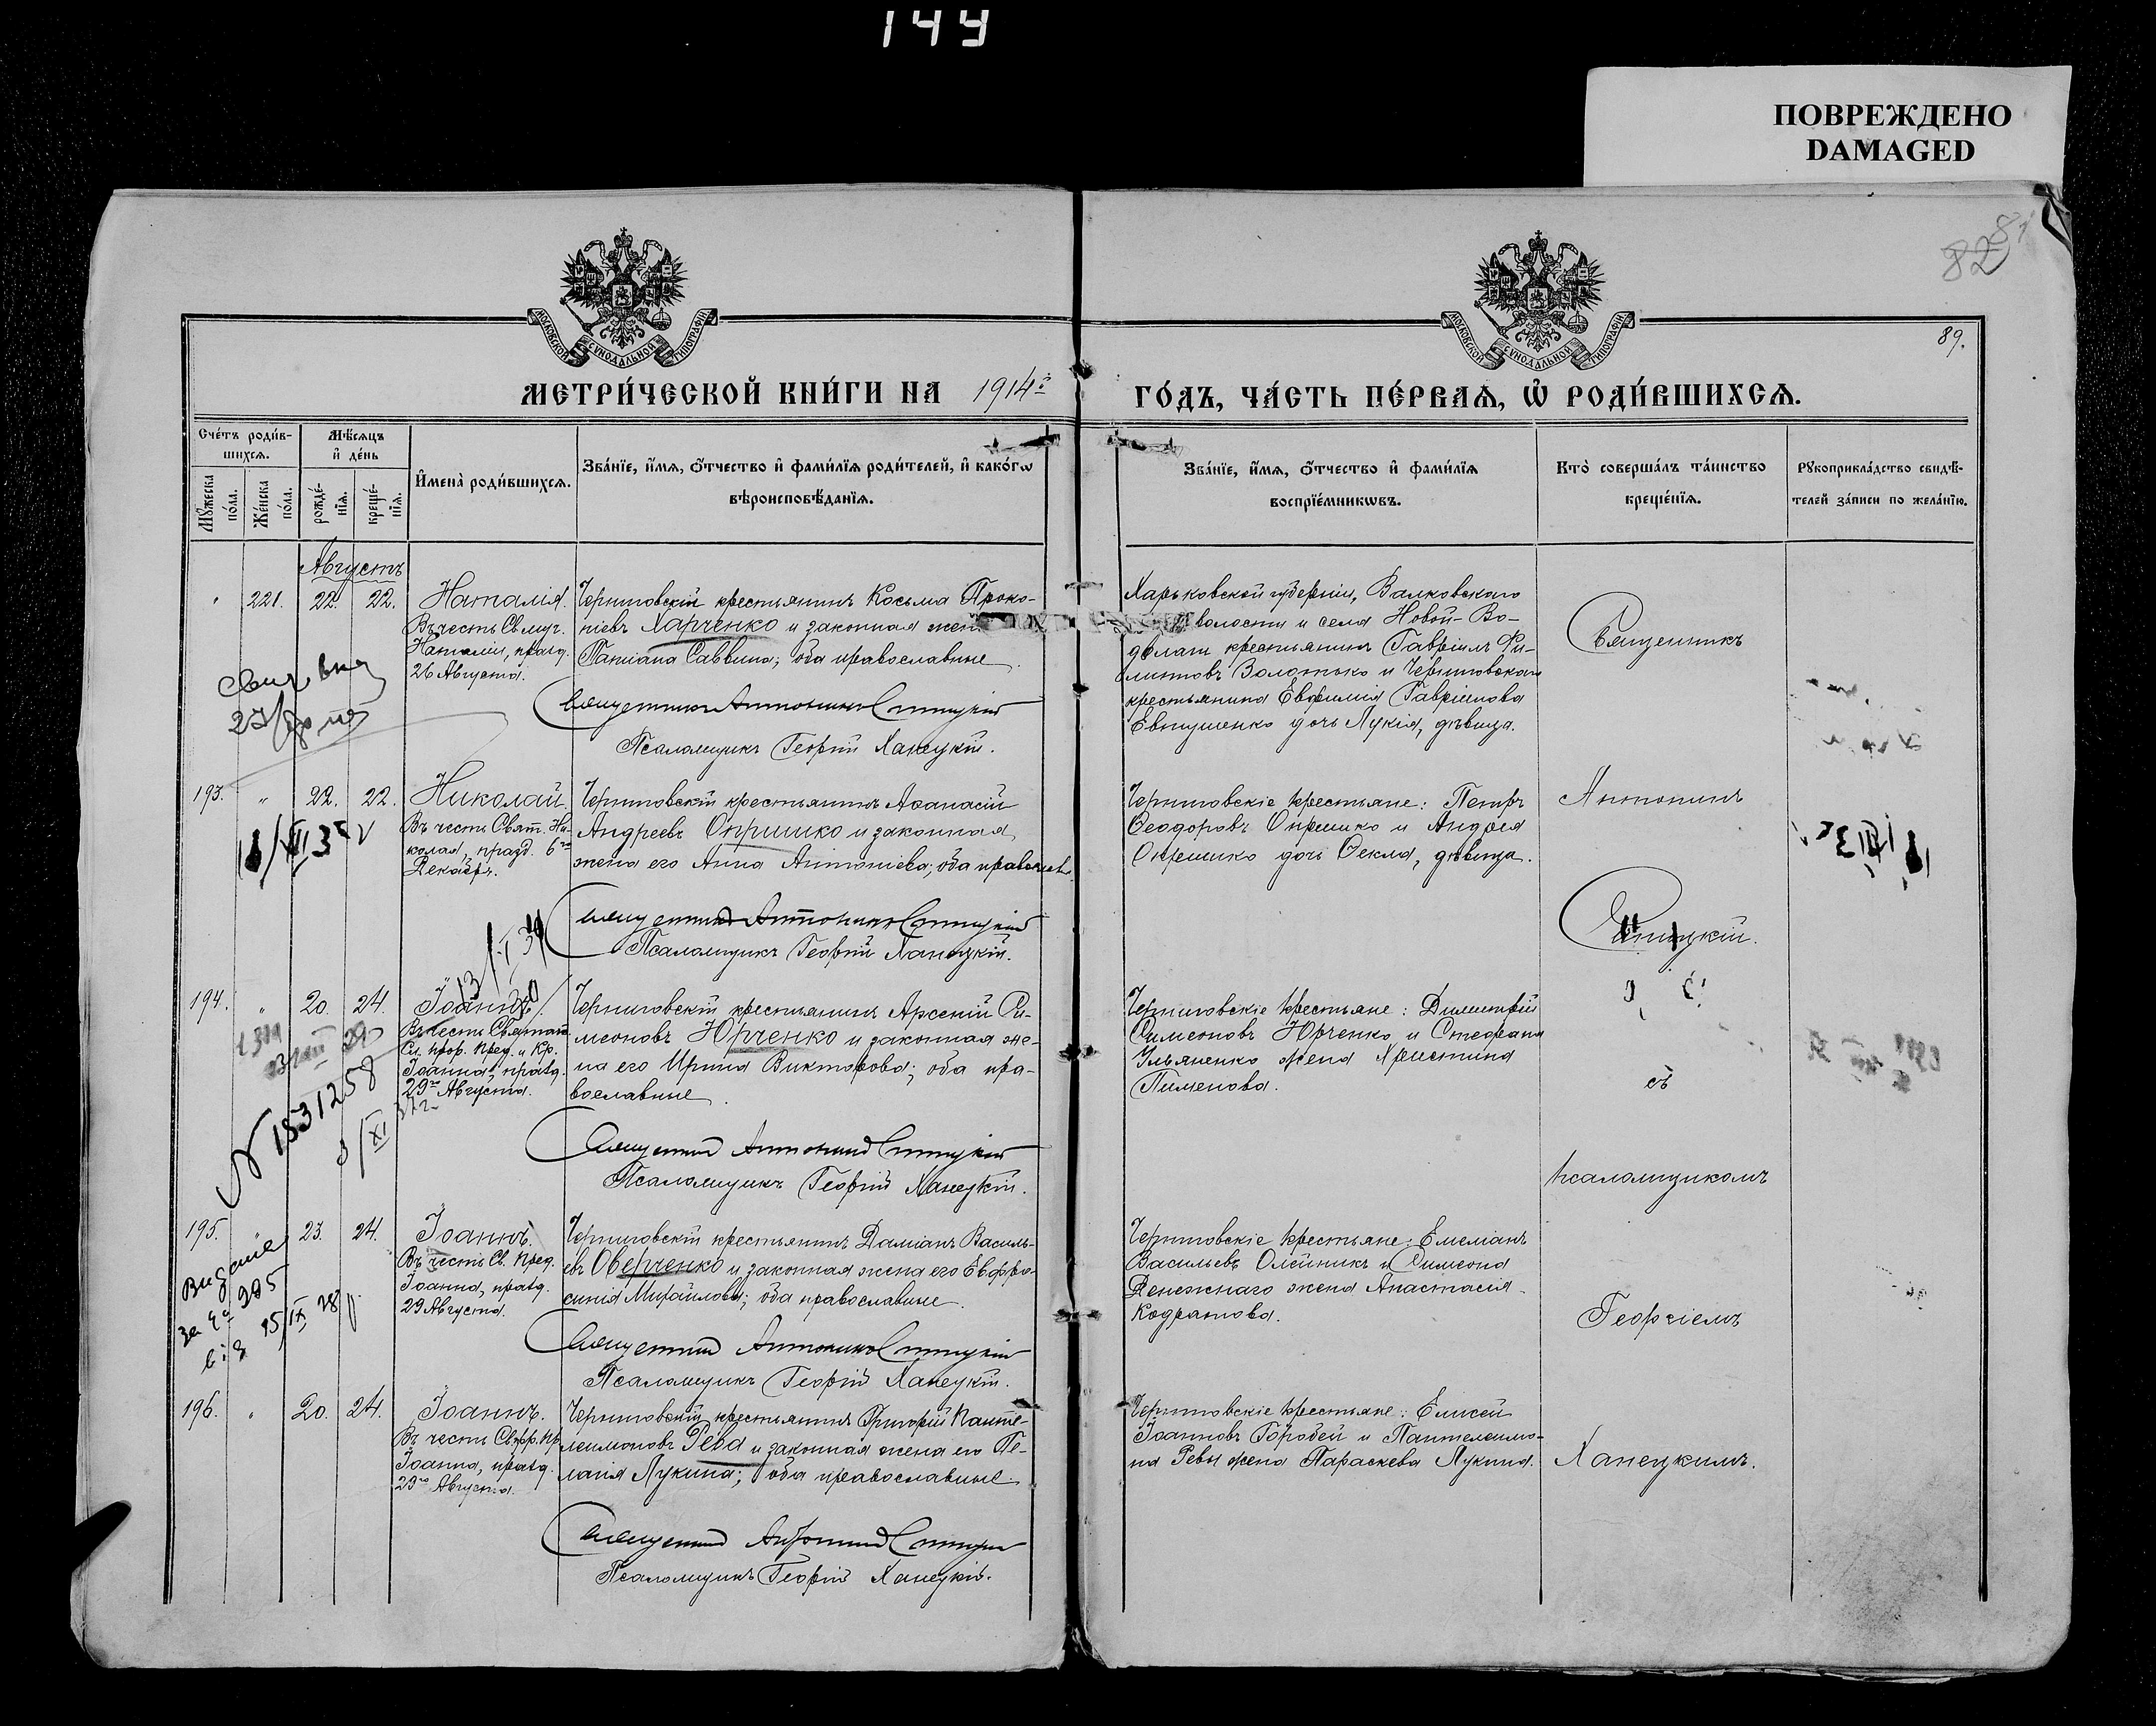 144
ПОВРЕЖДЕНО
DAMAGED
82
81
89.
МОСКОВСКОЙ СѴНОДАЛЬНОЙ ТИПОГРАФІИ
МОСКОВСКОЙ СѴНОДАЛЬНОЙ ТИПОГРАФІИ
МЕТРИ́ЧЕСКОЙ КНИ́ГИ НА 1914й
ГО́ДЪ, ЧА́СТЬ ПЕ́РВАѦ, Ѡ҆ РОДИ́ВШИХСѦ.
Сче́тъ роди́в-
шихсѧ.
Мѣ́сѧцъ
и҆ де́нь
Мꙋ́жеска
по́ла.
Же́нска
по́ла.
рожде́-
нїѧ.
креще́-
нїѧ.
И҆мена̀ роди́вшихсѧ.
Зва́нїе, и҆́мѧ, ѻ҆́тчество и҆ фами́лїѧ роди́телей, и҆ како́гѡ
вѣроисповѣ́данїѧ.
Зва́нїе, и҆́мѧ, ѻ҆́тчество и҆ фами́лїѧ
воспрїе́мникѡвъ.
Кто̀ соверша́лъ та́инство
креще́нїѧ.
Рꙋкоприкла́дство свидѣ́-
телей за́писи по жела́нїю.
Августъ
221. 22. 22. Наталія.
Въ честь Св. муч.
Наталіи, празд.
26 Августа.
Черниговскій крестьянинъ Косьма Проко-
піевъ Харченко и законная жена
Татіана Саввина; оба православные.
Священникъ Антонинъ Спицкій
Псаломщикъ Георгій Ханецкій.
Харьковской губерніи, Валковскаго
волости и села Новой-Во-
долаги крестьянинъ Гавріилъ Фи-
липповъ Золотько и Черниговскаго
крестьянина Евфимія Гавріилова
Евтушенко дочь Лукія, дѣвица.
193. " 22. 22. Николай.
Въ честь Свят. Ни-
колая, празд. 6го
Декабря.
Черниговскій крестьянинъ Аѳанасій
Андреевъ Опришко и законная
жена его Анна Антоніева; оба православ.
Священникъ Антонинъ Спицкій
Псаломщикъ Георгій Ханецкій.
Черниговскіе крестьяне: Петръ
Ѳеодоровъ Опришко и Андрея
Опришко дочь Ѳекла, дѣвица.
194. " 20. 24. Іоаннъ.
Іоанна, празд.
29го Августа.
Черниговскій крестьянинъ Арсеній Си-
меоновъ Юрченко и законная же-
на его Ирина Викторова; оба пра-
вославные.
Священникъ Антонинъ Спицкій
Псаломщикъ Георгій Ханецкій.
Черниговскіе крестьяне: Димитрій
Симеоновъ Юрченко и Стефана
Ульяненко жена Христина
Пименова.
N 1531258
195. 23. 24. Іоаннъ.
Въ честь Св. Пред.
Іоанна, празд.
29 Августа.
Черниговскій крестьянинъ Даміанъ Василь-
евъ Оверченко и законная жена его Евфро-
синія Михайлова; оба православные.
Священникъ Антонинъ Спицкій
Псаломщикъ Георгій Ханецкій.
Черниговскіе крестьяне: Емеліанъ
Васильевъ Олейникъ и Симеона
Денежнаго жена Анастасія
Кодратова.
196. " 20. 24. Іоаннъ.
Іоанна, празд.
29го Августа.
Черниговскій крестьянинъ Григорій Панте-
леимоновъ Рева и законная жена его Пе-
лагія Лукина; оба православные.
Священникъ Антонинъ Спицкій
Псаломщикъ Георгій Ханецкій.
Черниговскіе крестьяне: Елисей
Іоанновъ Горобей и Пантелеимо-
на Ревы жена Параскева Лукина.
Священникъ
Антонинъ
Спицкій.
съ
псаломщикомъ
Георгіемъ
Ханецкимъ.